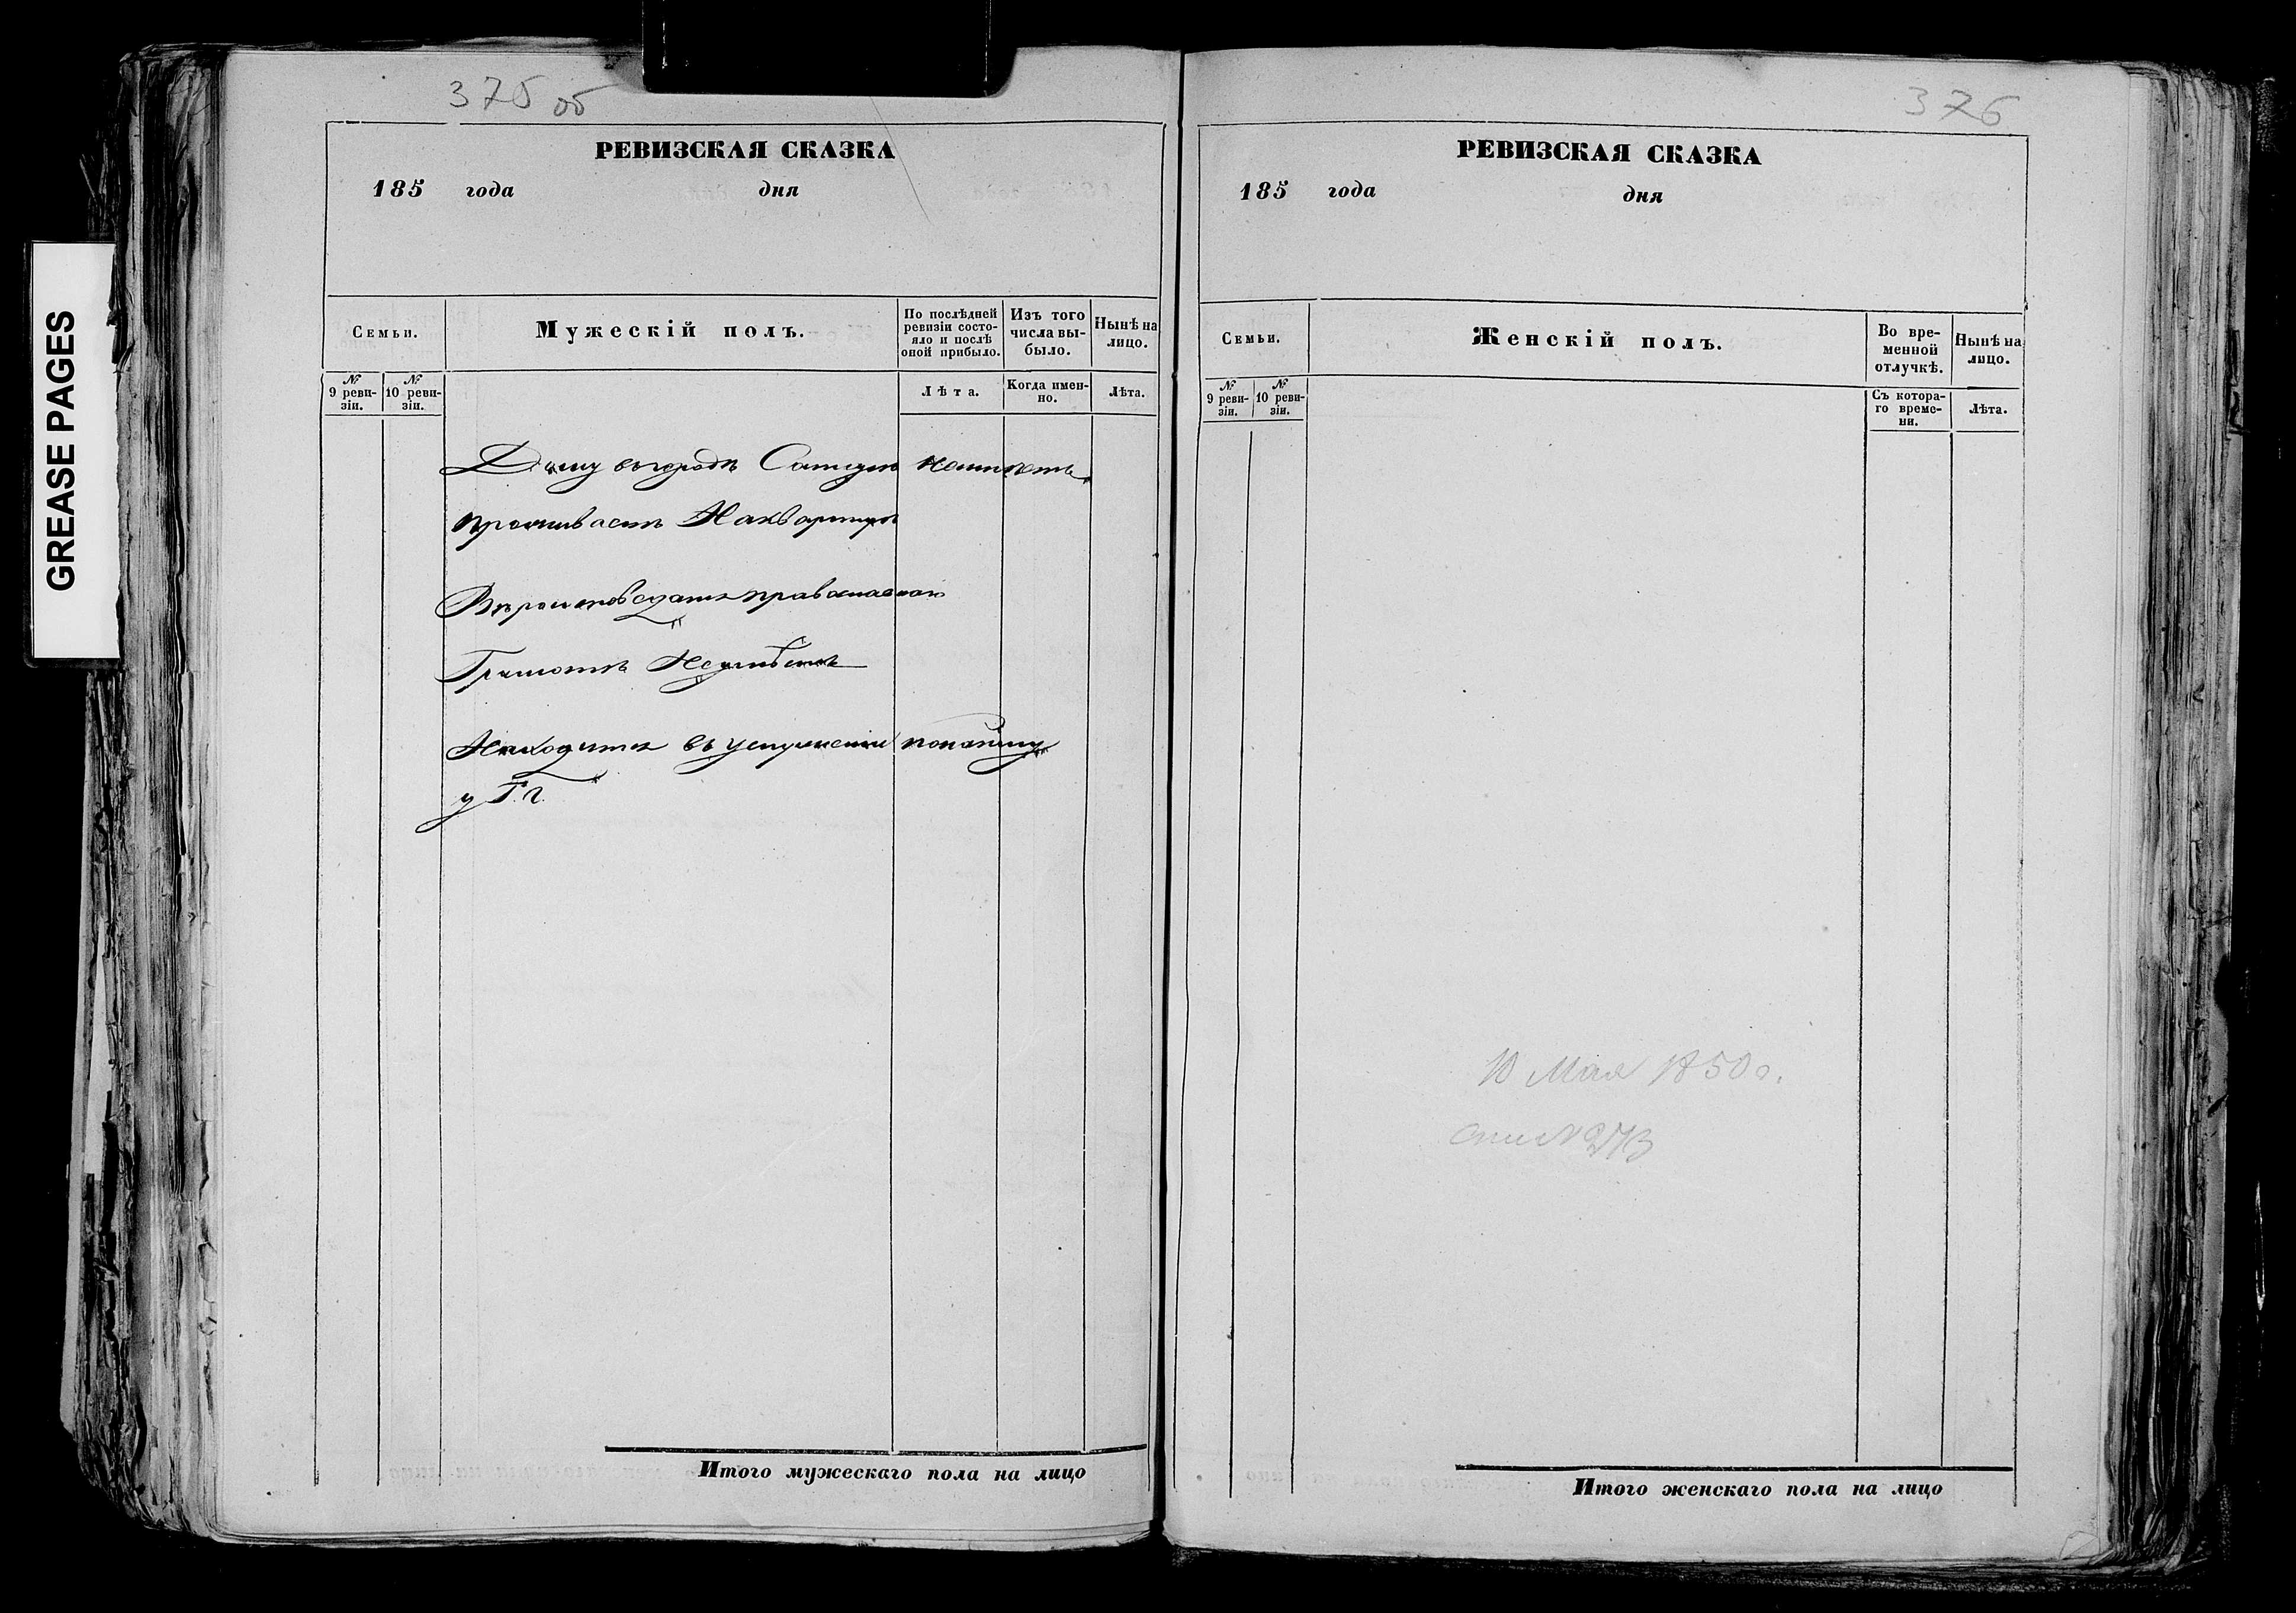 GREASE PAGES
375 об
РЕВИЗСКАЯ СКАЗКА
185 года дня
Семьи.
Мужескій полъ.
По послѣдней ревизіи состояло и послѣ оной прибыло.
Изъ того числа вы-было.
Нынѣ на лицо.
№ 9 реви-зіи.
№ 10 реви-зіи.
Лѣта.
Когда имен-но.
Лѣта.
Дому въ городѣ неимѣетъ
проживаетъ Наквартирѣ
Вѣроисповѣданія православнаго
Грамотѣ Неумѣетъ
Находится въ услуженіи понайму
у Г. г.
Итого мужескаго пола на лицо
376
РЕВИЗСКАЯ СКАЗКА
185 года дня
Семьи.
Женскій полъ.
Во вре-менной отлучкѣ.
Нынѣ на лицо.
№ 9 реви-зіи.
№ 10 реви-зіи.
Съ котора-го време-ни.
Лѣта.
10 Мая 1850 г.
Итого женскаго пола на лицо